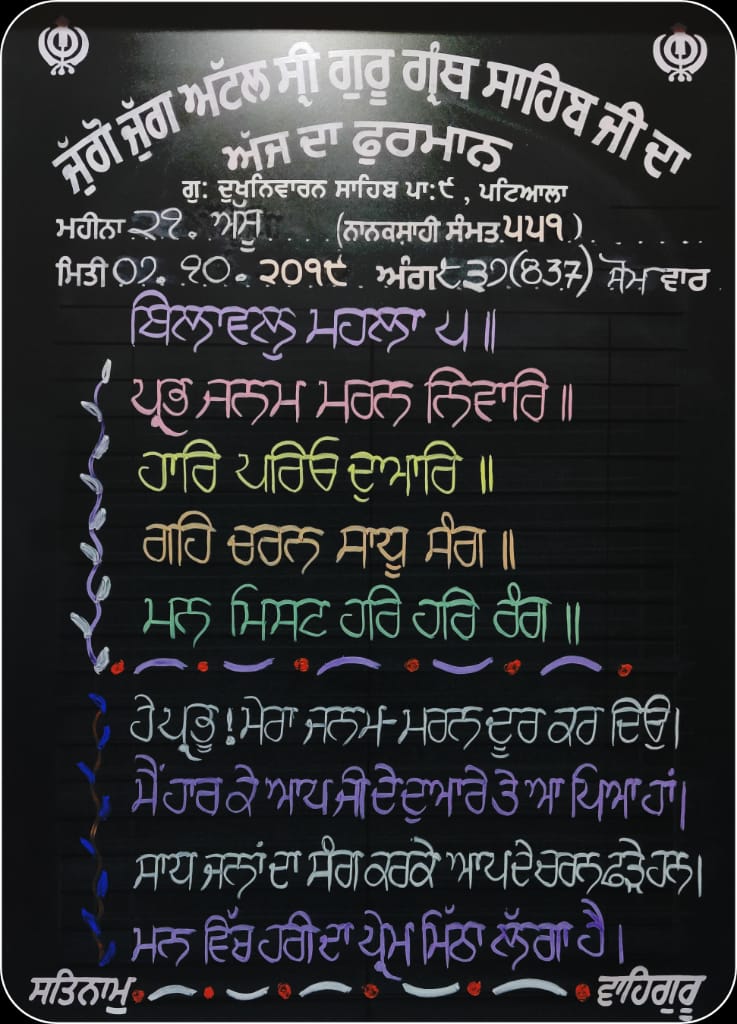 ਜੁੱਗੋ ਜੁੱਗ ਅਟੱਲ ਸ੍ਰੀ ਗੁਰੂ ਗ੍ਰੰਥ ਸਾਹਿਬ ਜੀ ਦਾ
ਅੱਜ ਦਾ ਫੁਰਮਾਨ
ਗੁ: ਦੁਖਨਿਵਾਰਨ ਸਾਹਿਬ ਪਾ:੯, ਪਟਿਆਲਾ
ਮਹੀਨਾ ੨੧. ਅੱਸੂ (ਨਾਨਕਸ਼ਾਹੀ ਸੰਮਤ ੫੫੧)
ਮਿਤੀ ੦੭.੧੦.੨੦੧੯ ਅੰਗ ੮੩੭(837) ਸੋਮ ਵਾਰ
ਬਿਲਾਵਲੁ ਮਹਲਾ ੫ ॥
ਪ੍ਰਭ ਜਨਮ ਮਰਨ ਨਿਵਾਰਿ ॥
ਹਾਰਿ ਪਰਿਓ ਦੁਆਰਿ ॥
ਗਹਿ ਚਰਨ ਸਾਧੂ ਸੰਗ ॥
ਮਨ ਮਿਸਟ ਹਰਿ ਹਰਿ ਰੰਗ ॥
ਹੇ ਪ੍ਰਭੂ! ਮੇਰਾ ਜਨਮ-ਮਰਨ ਦੂਰ ਕਰ ਦਿਓ।
ਮੈਂ ਹਾਰ ਕੇ ਆਪ ਜੀ ਦੇ ਦੁਆਰੇ ਤੇ ਆ ਪਿਆ ਹਾਂ।
ਸਾਧ ਜਨਾਂ ਦਾ ਸੰਗ ਕਰਕੇ ਆਪ ਦੇ ਚਰਨ ਫੜੇ ਹਨ।
ਮਨ ਵਿੱਚ ਹਰੀ ਦਾ ਪ੍ਰੇਮ ਮਿੱਠਾ ਲੱਗਾ ਹੈ।
ਸਤਿਨਾਮੁ ਵਾਹਿਗੁਰੂ